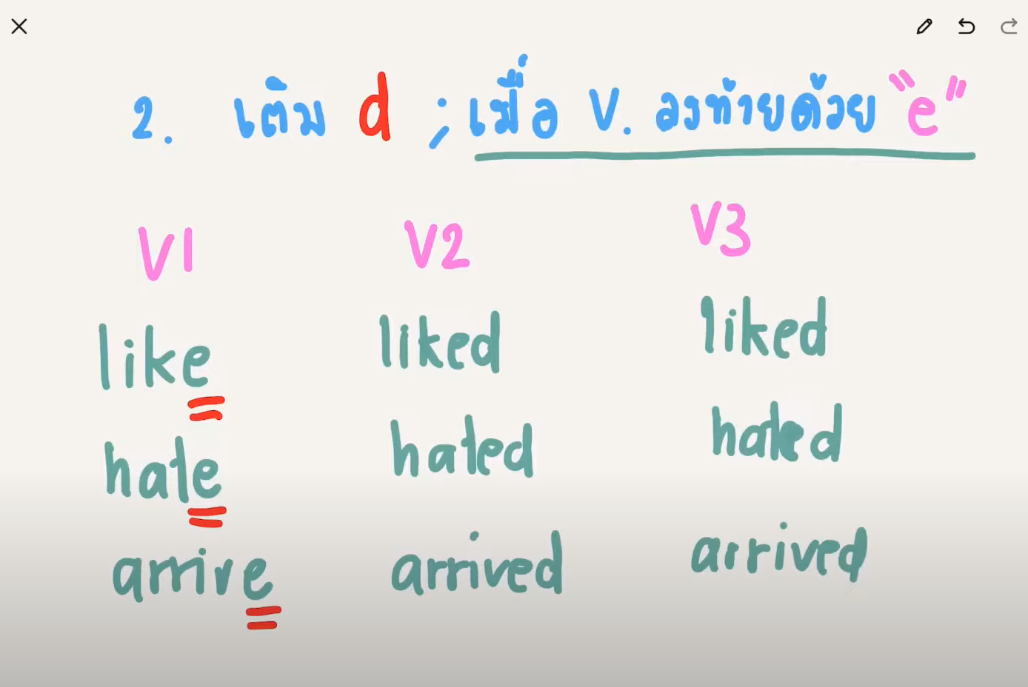 2. เติม d ; เมื่อ V. ลงท้ายด้วย "e"
V1 V2 V3
like liked liked
hate hated hated
arrive arrived arrived